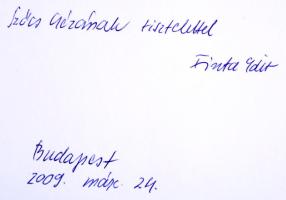 Szőcs Gézának tisztelettel
Finta Edit
Budapest
2009. márc. 24.